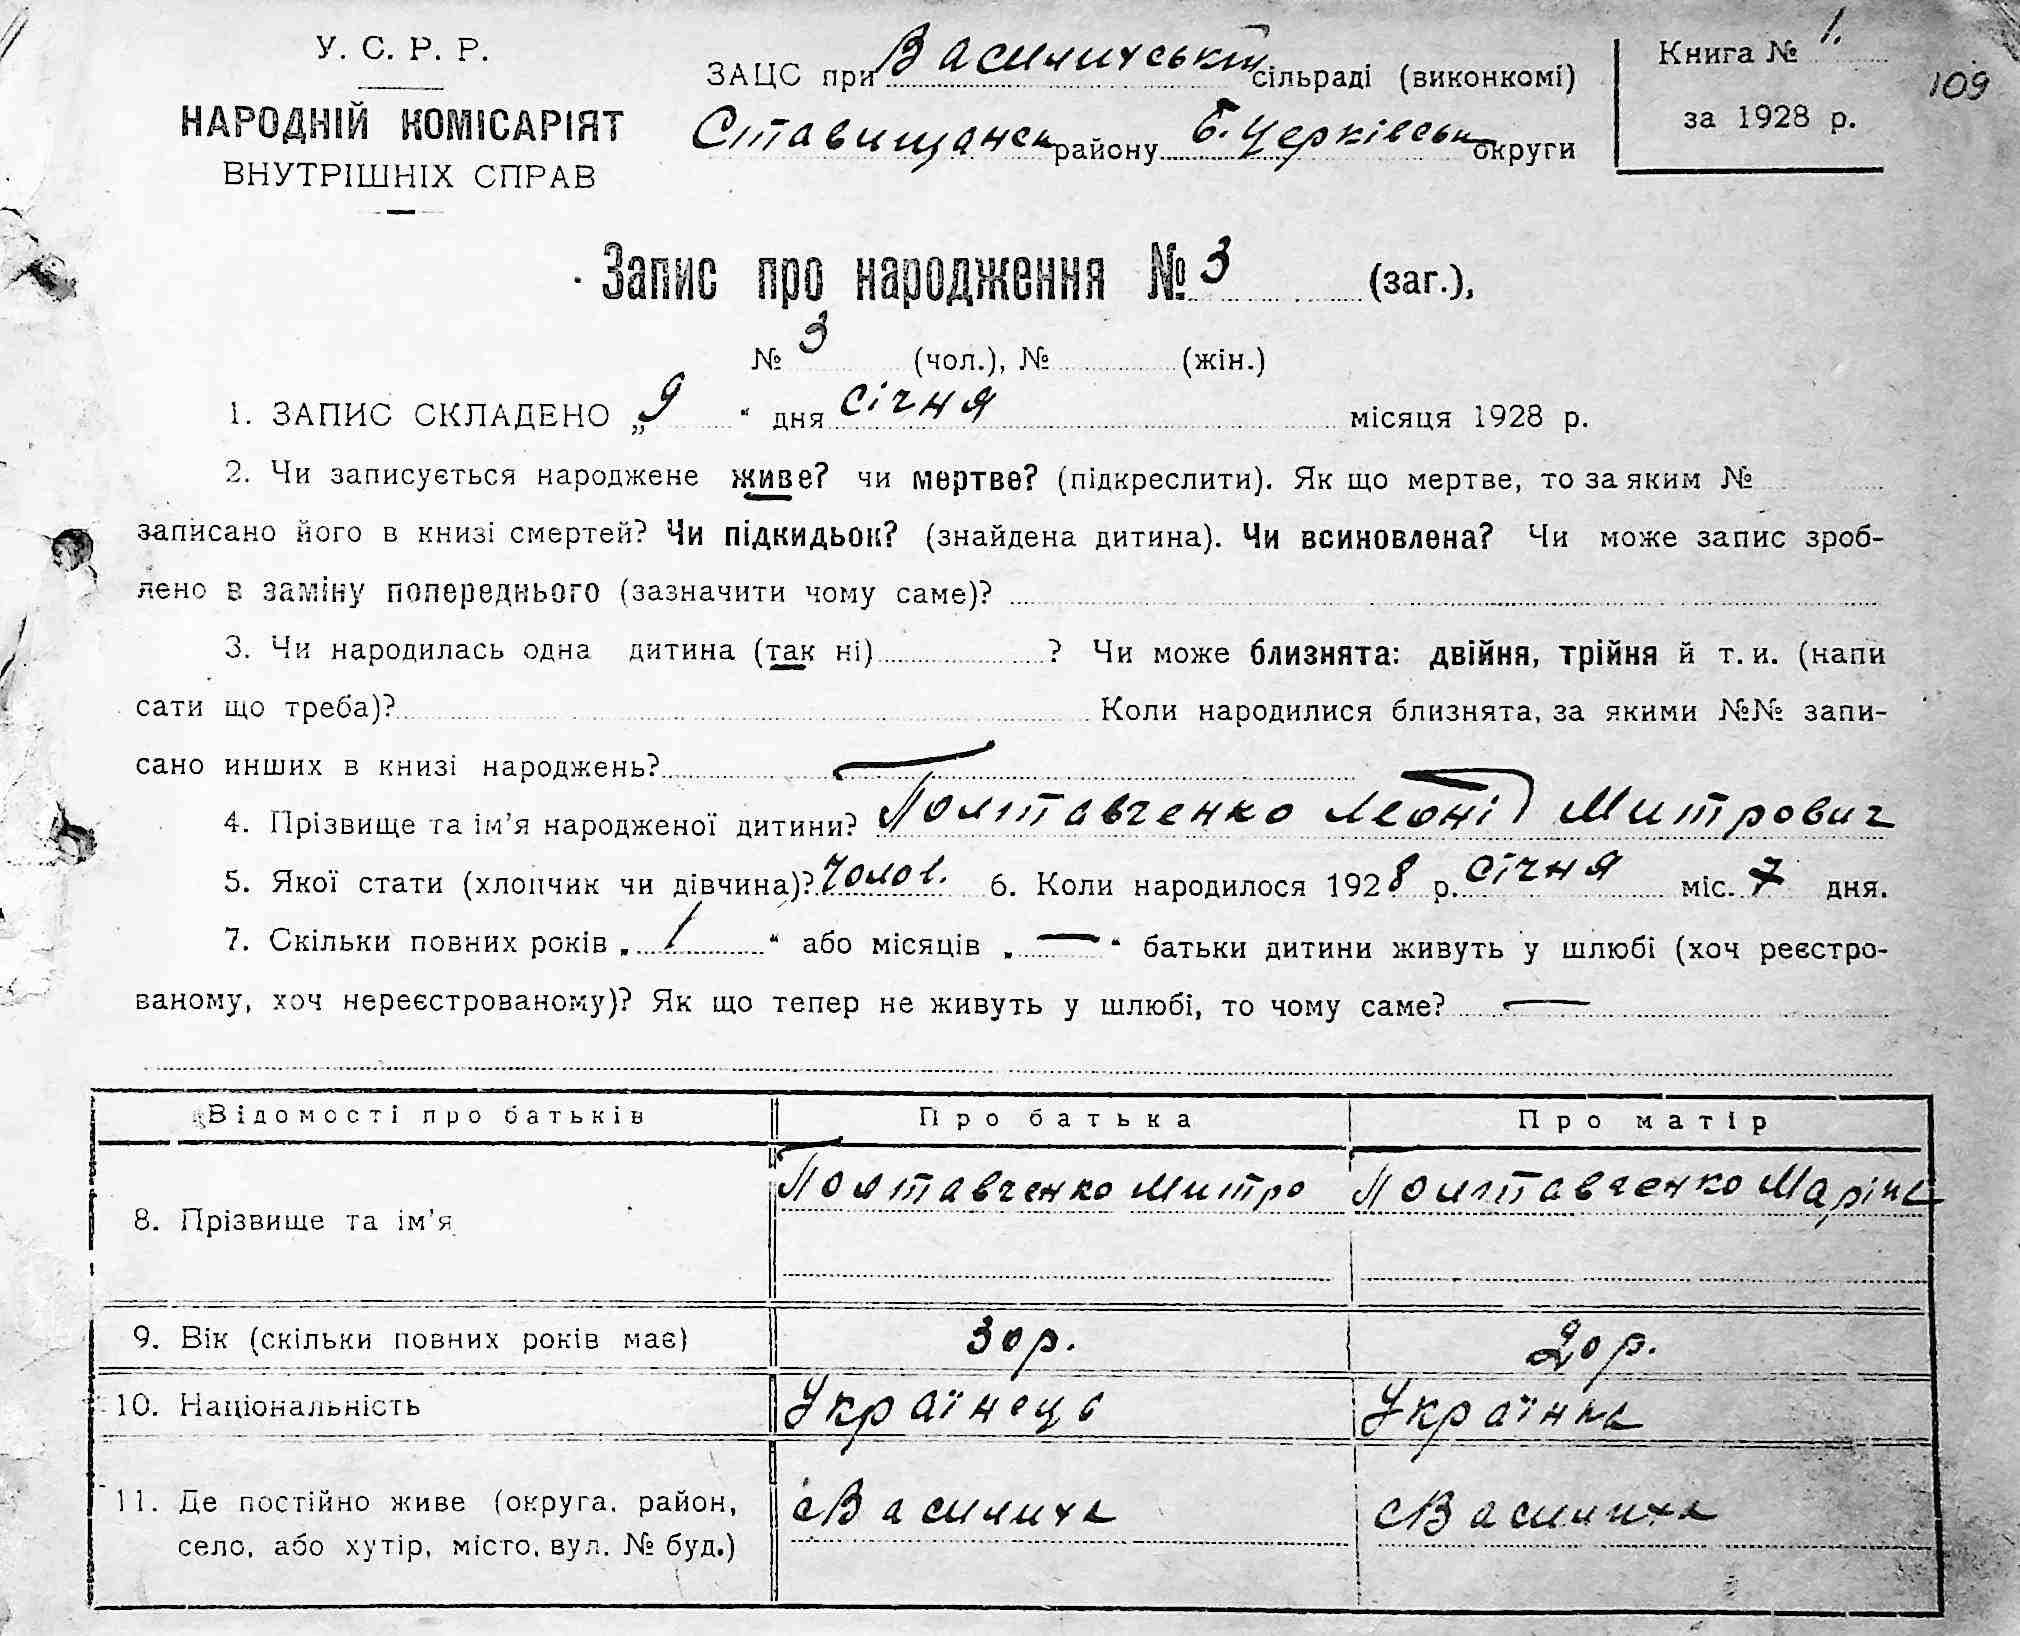 У. С. Р. Р.
НАРОДНІЙ КОМІСАРІЯТ
ВНУТРІШНІХ СПРАВ
ЗАЦС при Василихській сільраді (виконкомі)
Ставищанськ району Б. Церківськ округи
Книга № 1.
за 1928 р.
109
Запис про народження № 3 (заг.),
№ 3 (чол.), № (жін.)
1. ЗАПИС СКЛАДЕНО „9" дня січня місяця 1928 р.
2. Чи записується народжене живе? чи мертве? (підкреслити). Як що мертве, то за яким №
записано його в книзі смертей? Чи підкидьок? (знайдена дитина). Чи всиновлена? Чи може запис зроб-
лено в заміну попереднього (зазначити чому саме)?
3. Чи народилась одна дитина (так ні) ? Чи може близнята: двійня, трійня й т. и. (напи
сати що треба)? Коли народилися близнята, за якими №№ запи-
сано инших в книзі народжень?
4. Прізвище та ім'я народженої дитини? Полтавченко Леонід Митрович
5. Якої стати (хлопчик чи дівчина)? Чолов. 6. Коли народилося 1928 р. січня міс. 7 дня.
7. Скільки повних років „1" або місяців „—" батьки дитини живуть у шлюбі (хоч реєстро-
ваному, хоч нереєстрованому)? Як що тепер не живуть у шлюбі, то чому саме? —
Відомості про батьків Про батька Про матір
8. Прізвище та ім'я Полтавченко Митро Полтавченко Маріна
9. Вік (скільки повних років має) 30 р. 20 р.
10. Національність Українець Українка
11. Де постійно живе (округа, район, с Василиха с Василиха
село, або хутір, місто, вул. № буд.)